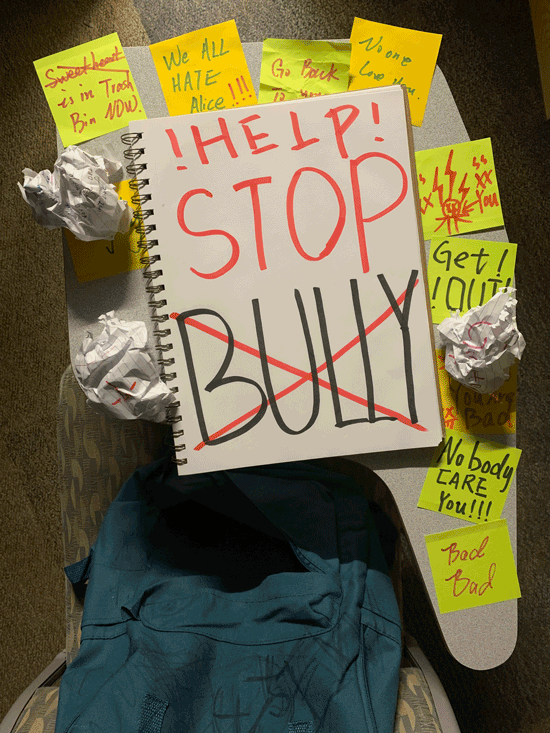 Sweetheart
is in Trash
Bin NOW.
We ALL
HATE
Alice!!!
Go Back
No one
Love You.
!HELP!
STOP
BULLY
XX
XX
You
Get!
!OUT!
You Are
Bad
Nobody
CARE
You!!!
Bad
Bad